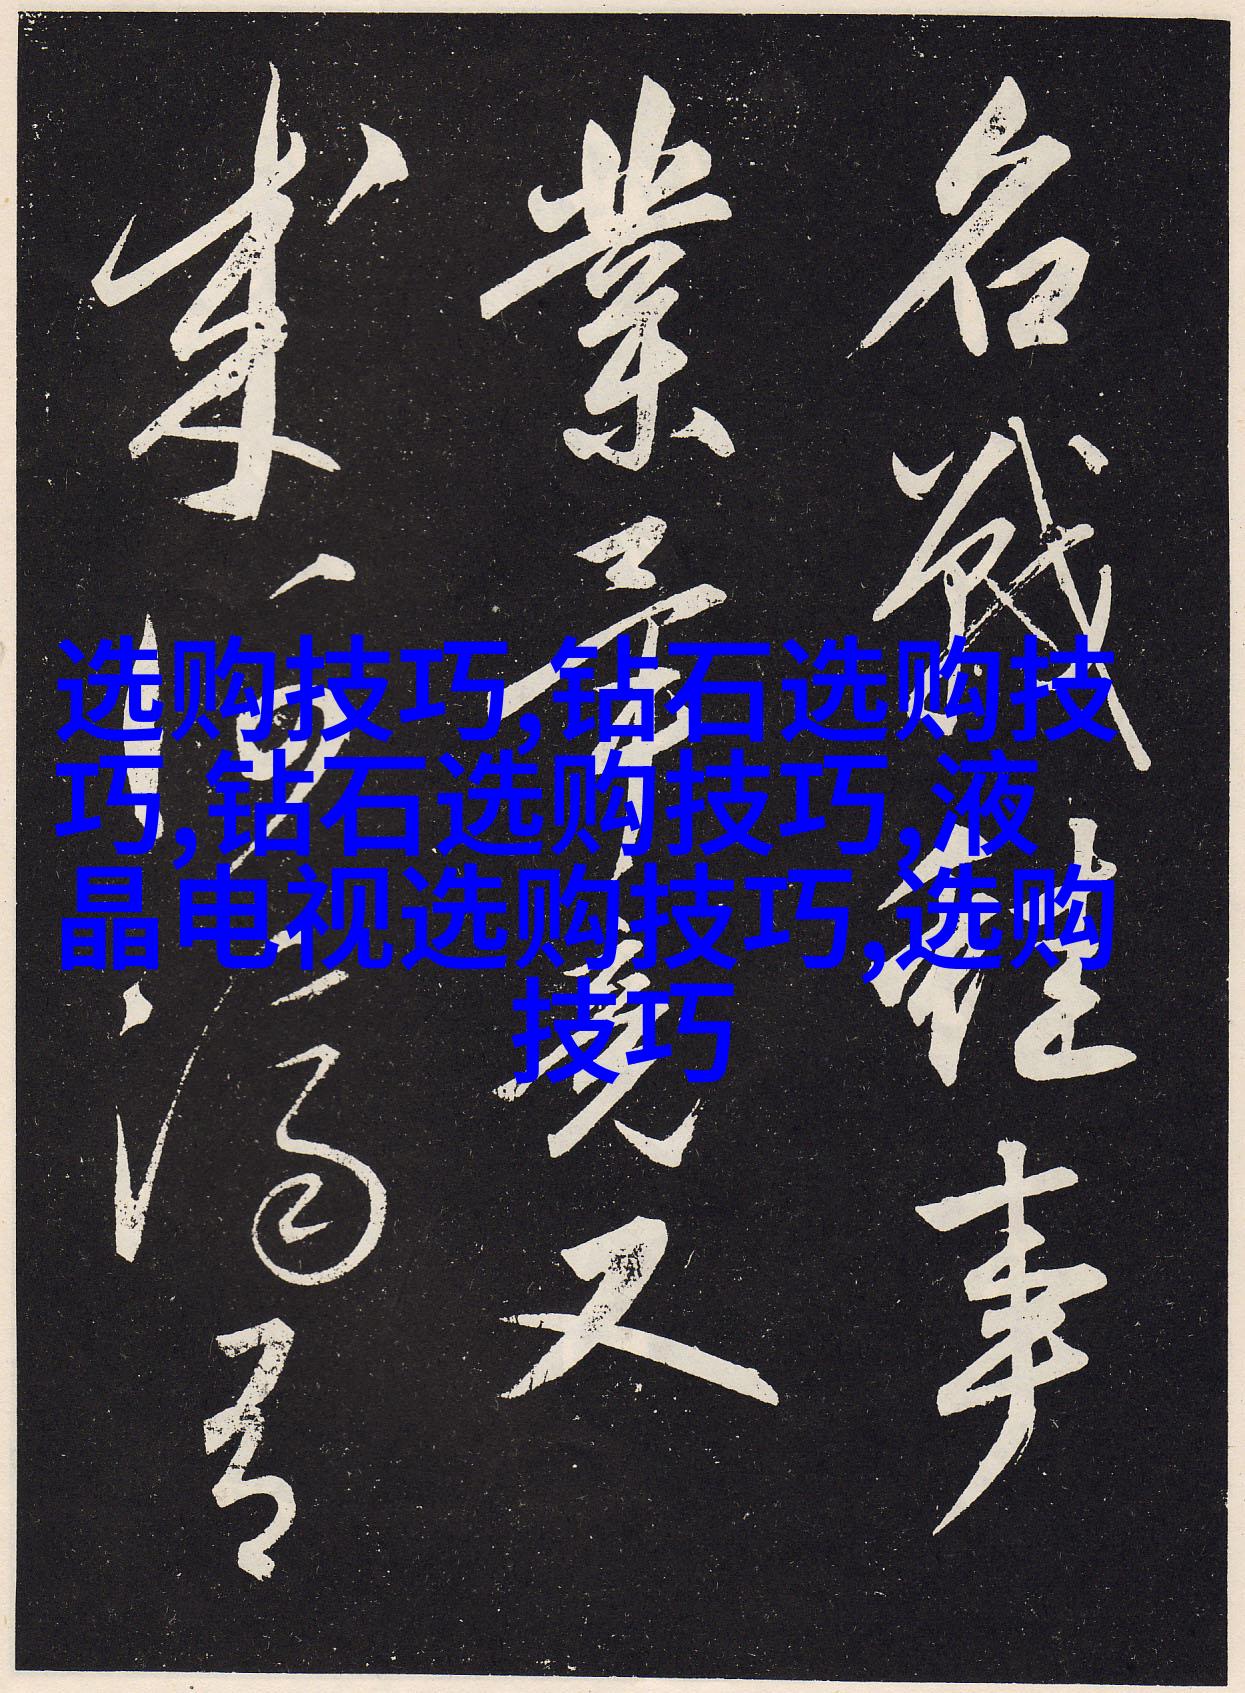 名戰雖事
業竟又
选购技巧,钻石选购技
巧,钻石选购技巧,液
晶电视选购技巧,选购
技巧